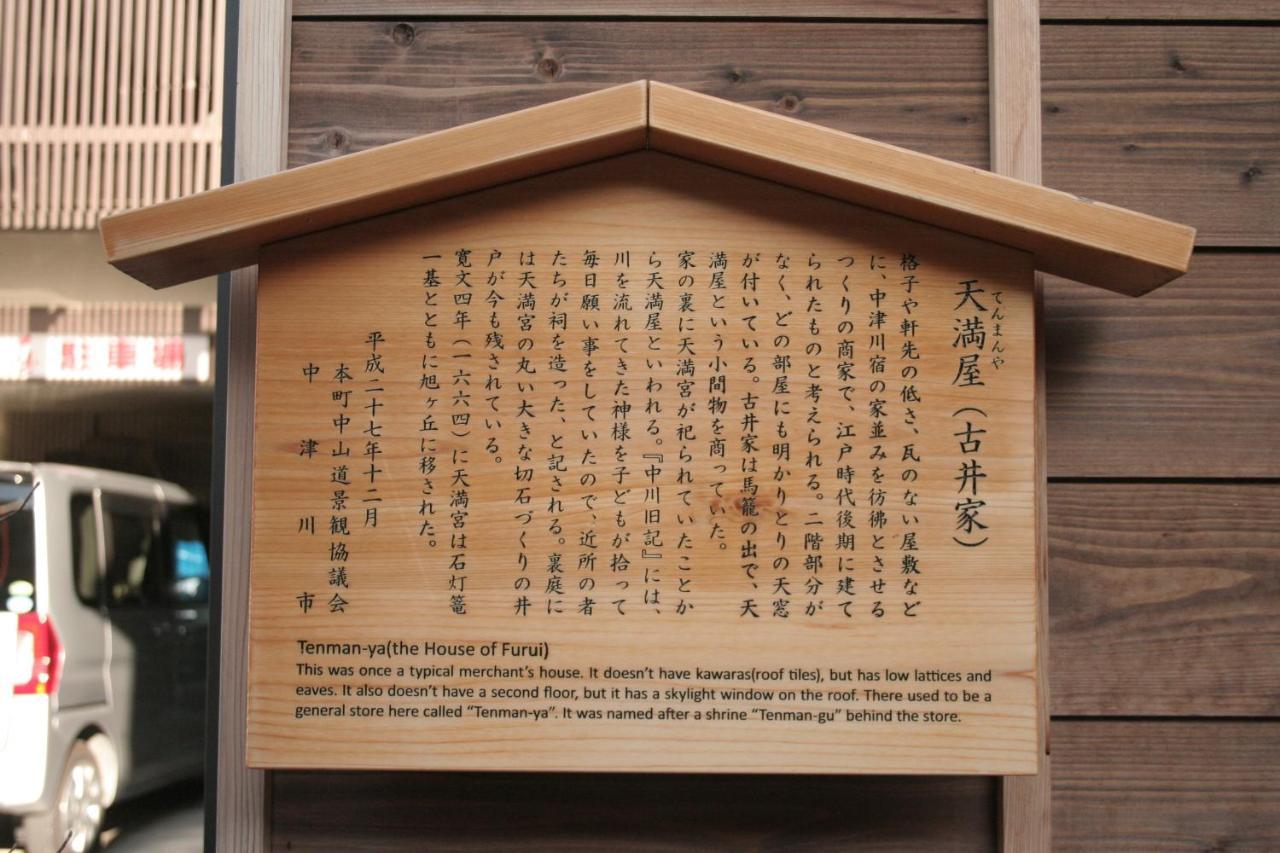 てんまんや
天満屋（古井家）
格子や軒先の低さ、瓦のない屋敷など
に、中津川宿の家並みを彷彿とさせる
つくりの商家で、江戸時代後期に建て
られたものと考えられる。二階部分が
なく、どの部屋にも明かりとりの天窓
が付いている。古井家は馬籠の出で、天
満屋という小間物を商っていた。
家の裏に天満宮が祀られていたことか
ら天満屋といわれる。『中川旧記』には、
川を流れてきた神様を子どもが拾って
毎日願い事をしていたので、近所の者
たちが祠を造った、と記される。裏庭に
は天満宮の丸い大きな切石づくりの井
戸が今も残されている。
寛文四年（一六六四）に天満宮は石灯篭
一基とともに旭ヶ丘に移された。
平成二十七年十二月
本町中山道景観協議会
中津川市
Tenman-ya(the House of Furui)
This was once a typical merchant's house. It doesn't have kawaras(roof tiles), but has low lattices and
eaves. It also doesn't have a second floor, but it has a skylight window on the roof. There used to be a
general store here called “Tenman-ya”. It was named after a shrine “Tenman-gu” behind the store.
駐車場